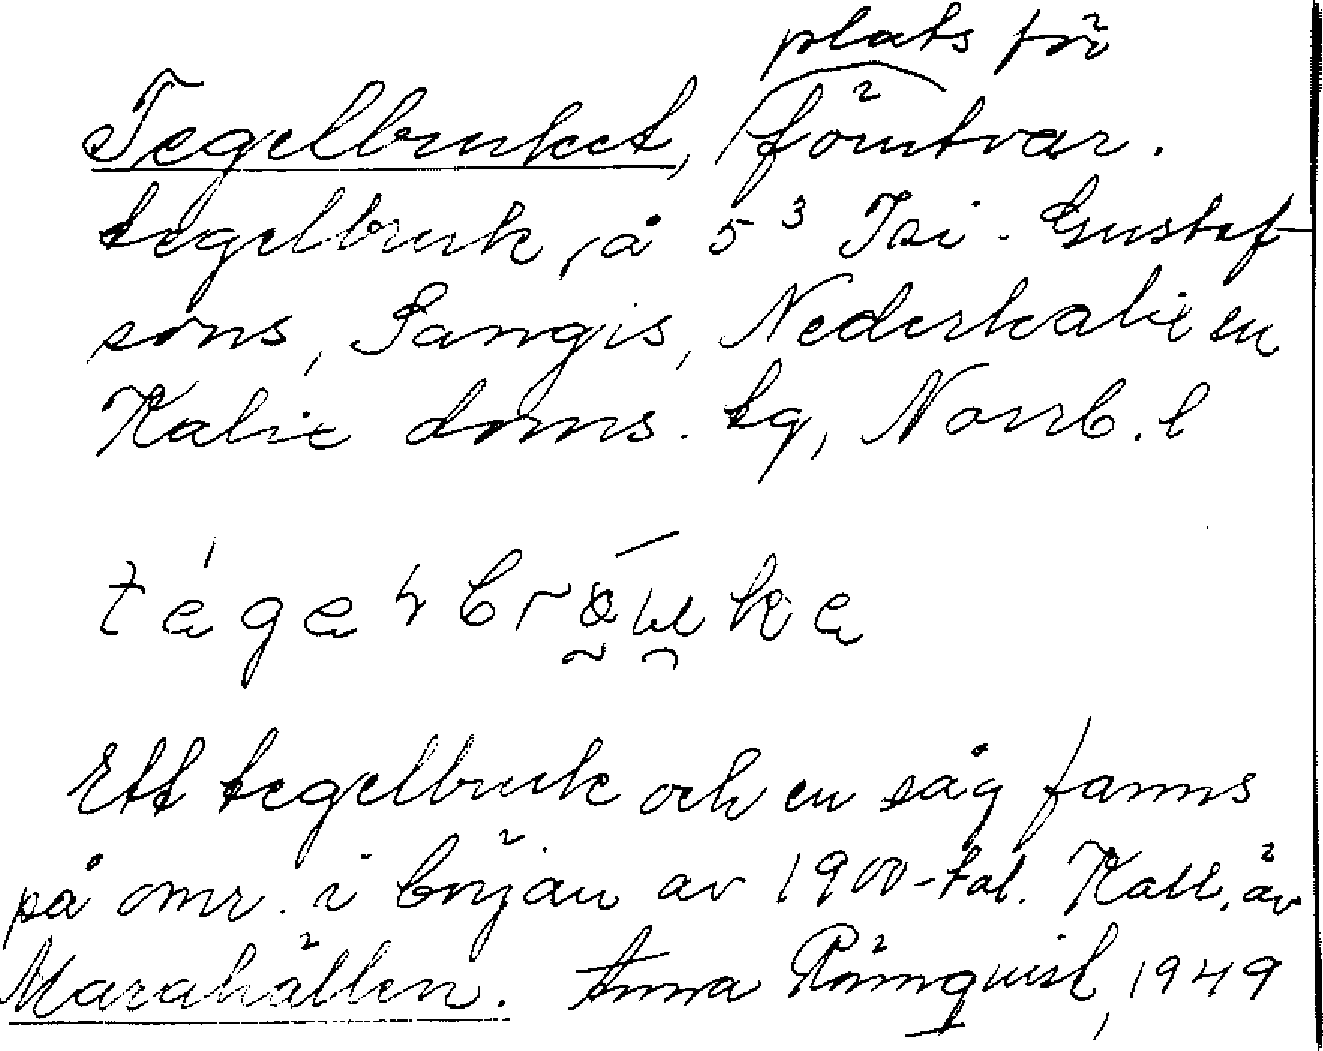 plats för
Tegelbruket, förutvar.
tegelbruk, å 5³ Isi. Gustaf-
sons, Sangis, Nederkalix sn
Kalix doms. tg, Norrb. l
Ett tegelbruk och en såg fanns
på omr. i början av 1900-tal. Kall. äv
Marahällen. Anna Rönnqvist, 1949